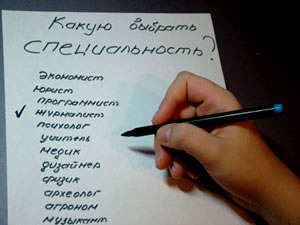 Какую выбрать
специальность?
экономист
юрист
программист
✓ журналист
психолог
учитель
медик
дизайнер
физик
археолог
агроном
музыкант